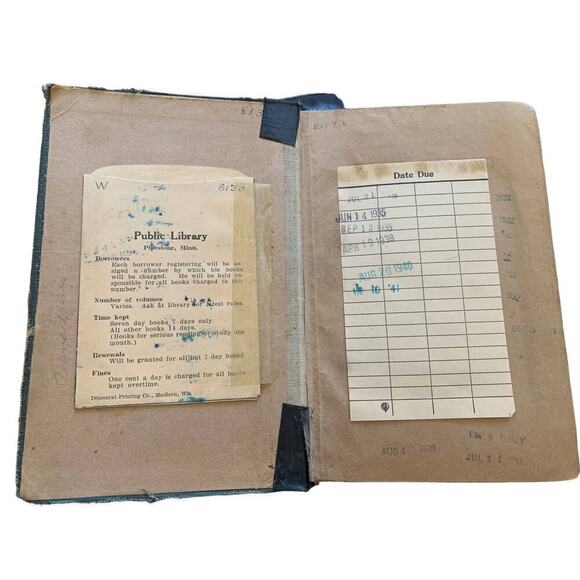 813
W 8138
Public Library
Pipestone, Minn.
Borrowers
Each borrower registering will be as-
signed a number by which his books
will be charged. He will be held re-
sponsible for all books charged to this
number.
Number of volumes
Varies. Ask at library for latest rules.
Time kept
Seven day books 7 days only.
All other books 14 days.
(Books for serious reading or study one
month.)
Renewals
Will be granted for all but 7 day books
Fines
One cent a day is charged for all books
kept overtime.
Democrat Printing Co., Madison, Wis.
Date Due
JUL 31
JUN 14 1935
SEP 18 1935
APR 19 1938
AUG 20 1940
10 '41
1932
1932
DEC
AUG 4 1933
JUL 1